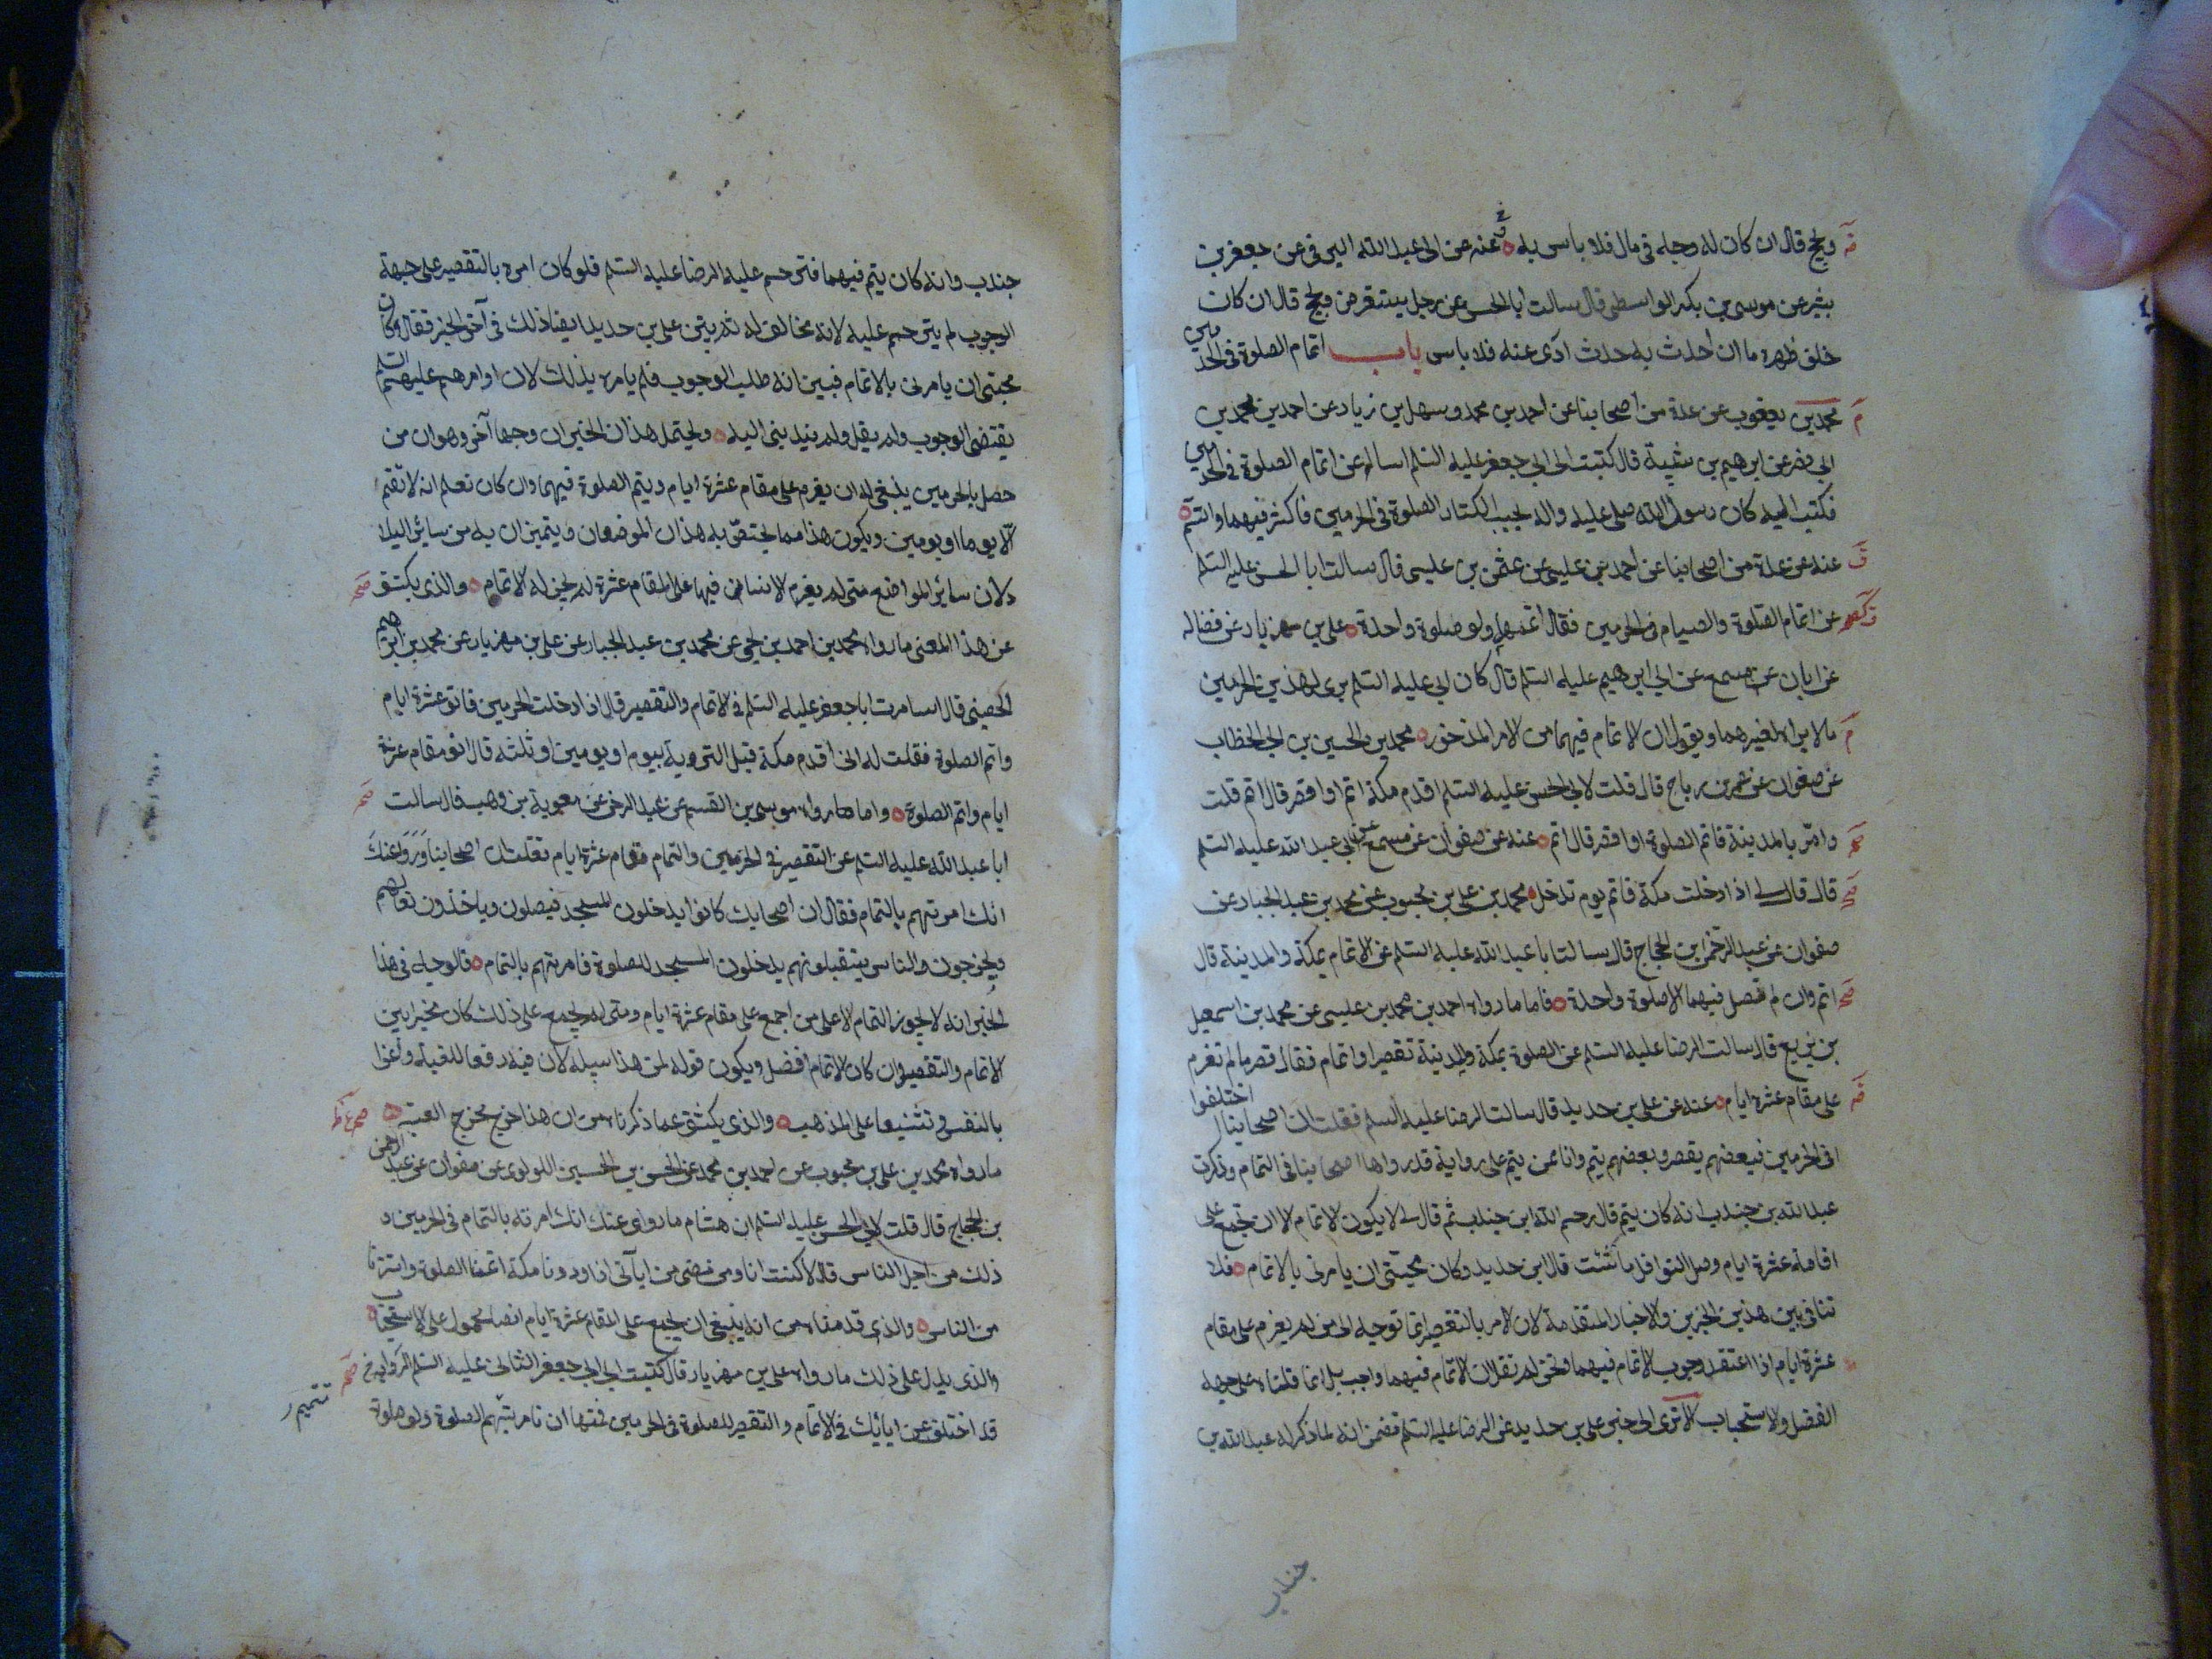 ويحج قال ان كان له وجه في مال فلا باس به عنه عن ابي عبد الله البرقي عن جعفر بن
بشير عن موسى بن بكر الواسطى قال سالت ابا الحسن عن رجل يستقرض ويحج قال ان كان
خلف ظهره ما ان احدث به حدث ادى عنه فلا باس باب اتمام الصلوة في الحرمين
محمد بن يعقوب عن عدة من اصحابنا عن احمد بن محمد وسهل بن زياد عن احمد بن محمد بن
ابي نصر عن ابرهيم بن شيبة قال كتبت الى ابي جعفر عليه السلم اساله عن اتمام الصلوة في الحرمين
فكتب اليه كان رسول الله صلى عليه واله يحب اكثار الصلوة في الحرمين فاكثر فيهما واتم
عنه عن عدة من اصحابنا عن احمد بن عيسى عن عثمن بن عيسى قال سالت ابا الحسن عليه السلم
عن اتمام الصلوة والصيام في الحرمين فقال اتمها ولو صلوة واحدة على بن مهزيار عن فضاله
عن ابان عن مسمع عن ابي ابرهيم عليه السلم قال كان ابي عليه السلم يرى لهذين الحرمين
مالا يراه لغيرهما ويقول ان الاتمام فيهما من الامر المذخور محمد بن الحسين بن ابي الخطاب
عن صفوان عن عمر بن رباح قال قلت لابي الحسن عليه السلم اقدم مكة اتم او اقصر قال اتم قلت
وامر بالمدينة فاتم الصلوة او اقصر قال اتم عنه عن صفوان عن مسمع عن ابي عبد الله عليه السلم
قال قال لي اذا دخلت مكة فاتم يوم تدخل محمد بن على بن محبوب عن محمد بن عبد الجبار عن
صفوان عن عبد الرحمن بن الحجاج قال سالت ابا عبد الله عليه السلم عن الاتمام بمكة والمدينة قال
اتم وان لم تصل فيهما الا صلوة واحدة فاما ما رواه احمد بن محمد بن عيسى عن محمد بن اسمعيل
بن بزيع قال سالت الرضا عليه السلم عن الصلوة بمكة والمدينة تقصير او اتمام فقال قصر ما لم تعزم
على مقام عشرة ايام عنه عن على بن حديد قال سالت الرضا عليه السلم فقلت ان اصحابنا اختلفوا
في الحرمين فبعضهم يقصر وبعضهم يتم وانا ممن يتم على رواية قد رواها اصحابنا في التمام وذكرت
عبد الله بن جندب انه كان يتم قال رحم الله ابن جندب ثم قال لي لا يكون الاتمام الا ان تجمع على
اقامة عشرة ايام وصل النوافل ما شئت قال ابن حديد وكان محبتى ان يامرنى بالاتمام فلا
تنافى بين هذين الخبرين والاخبار المتقدمة لان الامر بالتقصير انما توجه الى من لم يعزم على مقام
عشرة ايام اذا اعتقد وجوب الاتمام فيهما ونحن لم نقل ان الاتمام فيهما واجب بل انما قلناه على جهة
الفضل والاستحباب الا ترى الى خبر على بن حديد عن الرضا عليه السلم تضمن انه لما ذكر له عبد الله بن
جندب
جندب وانه كان يتم فيهما فترحم عليه الرضا عليه السلم فلو كان امره بالتقصير على جهة
الوجوب لم يترحم عليه لانه مخالف له ثم بين على بن حديد ايضا ذلك في آخر الخبر فقال وكان
محبتى ان يامرنى بالاتمام فبين انه طلب الوجوب فلم يامره بذلك لان اوامرهم عليهم السلم
يقتضى الوجوب ولم يقل ولم يندبنى اليه ويحتمل هذان الخبران وجها آخر وهو ان من
حصل بالحرمين ينبغى له ان يعزم على مقام عشرة ايام ويتم الصلوة فيهما وان كان تعلم انه لا يقيم
الا يوما او يومين ويكون هذا مما يختص به هذان الموضعان ويتميزان به من سائر البلاد
لان سائر المواضع متى لم يعزم الانسان فيها على المقام عشرة لم يجز له الاتمام والذى يكشف
عن هذا المعنى ما رواه محمد بن احمد بن يحيى عن محمد بن عبد الجبار عن على بن مهزيار عن محمد بن ابرهيم
الحضينى قال استامرت ابا جعفر عليه السلم في الاتمام والتقصير قال اذا دخلت الحرمين فانو عشرة ايام
واتم الصلوة فقلت له انى اقدم مكة قبل التروية بيوم او يومين او ثلثة قال انو مقام عشرة
ايام واتم الصلوة واما ما رواه موسى بن القسم عن عبد الرحمن عن معوية بن وهب قال سالت
ابا عبد الله عليه السلم عن التقصير في الحرمين والتمام مقام عشرة ايام فقلت ان اصحابنا رووا عنك
انك امرتهم بالتمام فقال ان اصحابك كانوا يدخلون المسجد فيصلون وياخذون نعالهم
ويخرجون والناس يستقبلونهم يدخلون المسجد للصلوة فامرتهم بالتمام فالوجه في هذا
الخبر انه لا يجوز التمام الا على من اجمع على مقام عشرة ايام ومتى لم يجمع على ذلك كان مخيرا بين
الاتمام والتقصير وان كان الاتمام افضل ويكون قوله لمن هذا سبيله لان فيه رفعا للتقية واغراء
بالنفس وتشنيعا على المذهب والذى يكشف عما ذكرناه من ان هذا خرج مخرج التقية
ما رواه محمد بن على بن محبوب عن احمد بن محمد عن الحسن بن الحسين اللؤلؤى عن صفوان عن عبد الرحمن
بن الحجاج قال قلت لابي الحسن عليه السلم ان هشام ما روى عنك انك امرته بالتمام في الحرمين و
ذلك من اجل الناس قال لا كنت انا ومن مضى من ابآئى اذا وردنا مكة اتممنا الصلوة واستترنا
من الناس والذى قدمناه من انه ينبغى ان يجمع على المقام عشرة ايام انما محمول على الاستحباب
والذى يدل على ذلك ما رواه على بن مهزيار قال كتبت الى ابي جعفر الثانى عليه السلم الرواية
قد اختلف عن ابائك في الاتمام والتقصير للصلوة في الحرمين فمنها ان تامر بتتميم الصلوة ولو صلوة